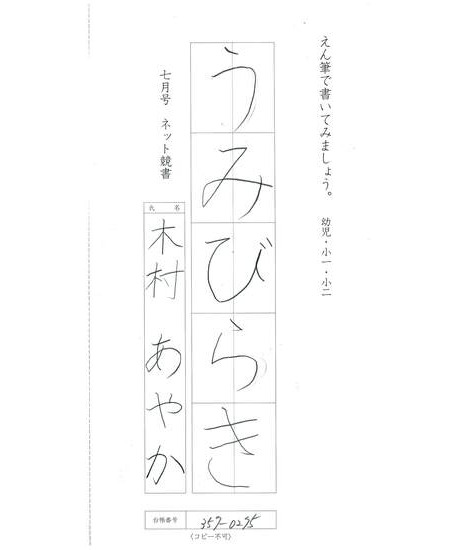 えん筆で書いてみましょう。 幼児・小一・小二
うみびらき
七月号 ネット競書
氏名
木村 あやか
台帳番号 357-0295
〈コピー不可〉